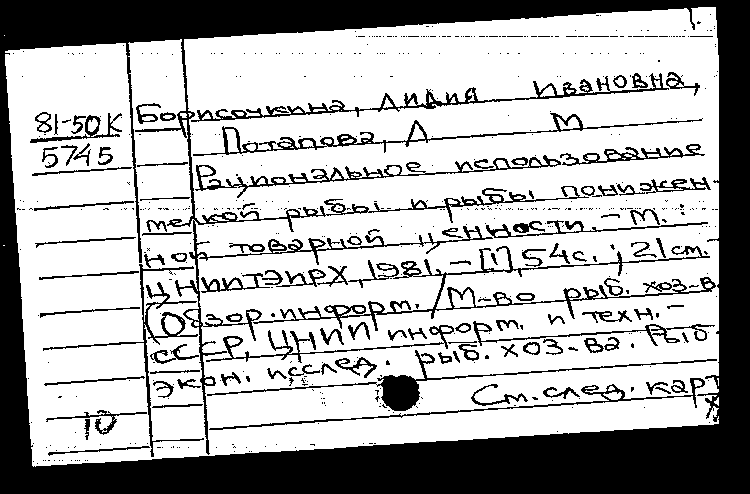 81-50К
5745
Борисочкина, Лидия Ивановна,
Потапова, Л М
Рациональное использование
мелкой рыбы и рыбы понижен-
ной товарной ценности. - М. :
ЦНИИТЭИРХ, 1981. - [1], 54с. ; 21 см. -
(Обзор. информ. / М-во рыб. хоз-в.
СССР, ЦНИИ информ. и техн. -
экон. исслед. рыб. хоз-ва. Рыб.
См. след. карт
10